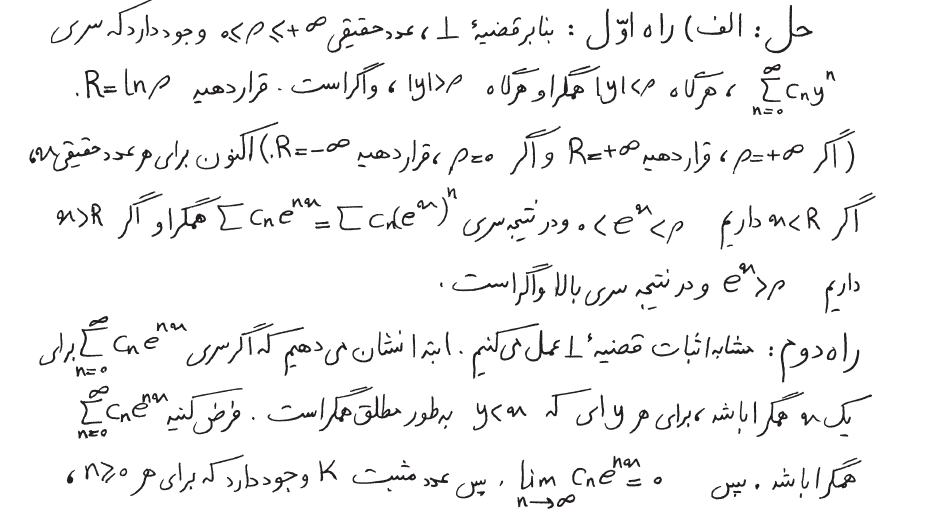 حل: الف) راه اوّل: بنابر قضیهٔ ۱، عدد حقیقی 0≤ρ≤+∞ وجود دارد که سری
∑_{n=0}^{∞} cₙyⁿ، هرگاه |y|<ρ همگرا و هرگاه |y|>ρ، واگراست. قرار دهید R=lnρ.
(اگر ρ=+∞، قرار دهید R=+∞ و اگر ρ=0، قرار دهید R=-∞.) اکنون برای هر عدد حقیقی x،
اگر x<R داریم 0<e^x<ρ و در نتیجه سری ∑cₙe^{nx}=∑cₙ(e^x)^n همگرا و اگر x>R
داریم e^x>ρ و در نتیجه سری بالا واگراست.
راه دوم: مشابه اثبات قضیهٔ ۱ عمل می‌کنیم. ابتدا نشان می‌دهیم که اگر سری ∑_{n=0}^{∞} cₙe^{nx} برای
یک x همگرا باشد، برای هر y ای که y<x به‌طور مطلق همگراست. فرض کنید ∑_{n=0}^{∞} cₙe^{nx}
همگرا باشد. پس lim_{n→∞} cₙe^{nx}=0. پس عدد مثبت K وجود دارد که برای هر n≥0،